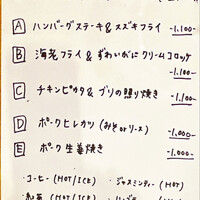 A ハンバーグステーキ & スズキフライ -1.100-
B 海老フライ & ずわいがに クリームコロッケ -1.100-
C チキンピカタ & ブリの照り焼き -1.100-
D ポークヒレカツ (みそorソース) -1.000-
E ポーク生姜焼き -1.000-
・コーヒー (HOT/ICE) ・ジャスミンティー (HOT)
・紅茶 (HOT/ICE)